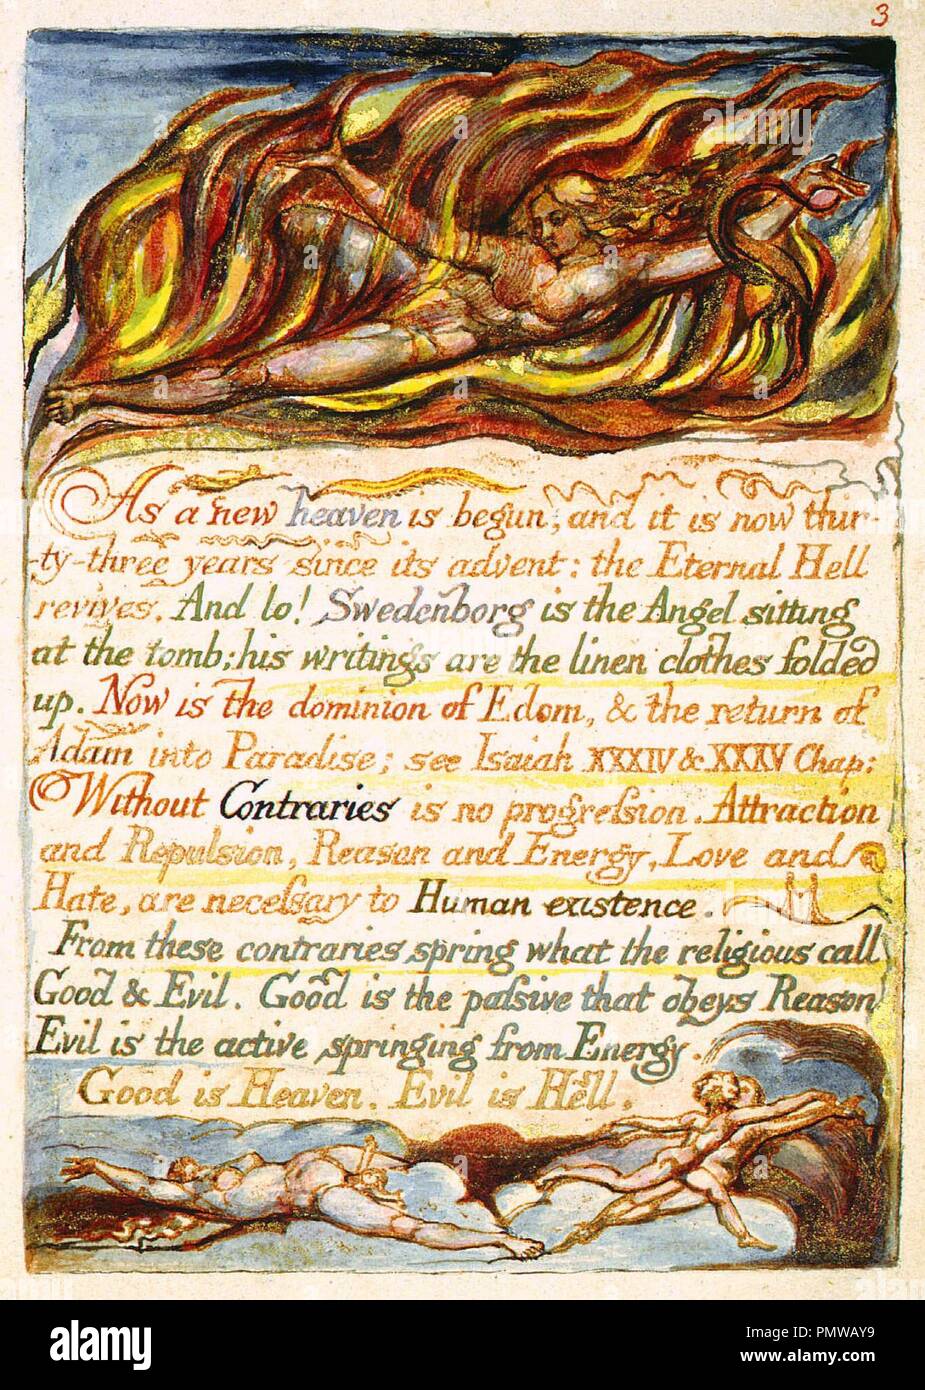 3
As a new heaven is begun, and it is now thir-
-ty-three years since its advent: the Eternal Hell
revives. And lo! Swedenborg is the Angel sitting
at the tomb; his writings are the linen clothes folded
up. Now is the dominion of Edom, & the return of
Adam into Paradise; see Isaiah XXXIV & XXXV Chap:
Without Contraries is no progreſsion. Attraction
and Repulsion, Reason and Energy, Love and
Hate, are neceſsary to Human existence.
From these contraries spring what the religious call
Good & Evil. Good is the paſsive that obeys Reason
Evil is the active springing from Energy.
Good is Heaven. Evil is Hell.
alamy
Image ID: PMWAY9
www.alamy.com